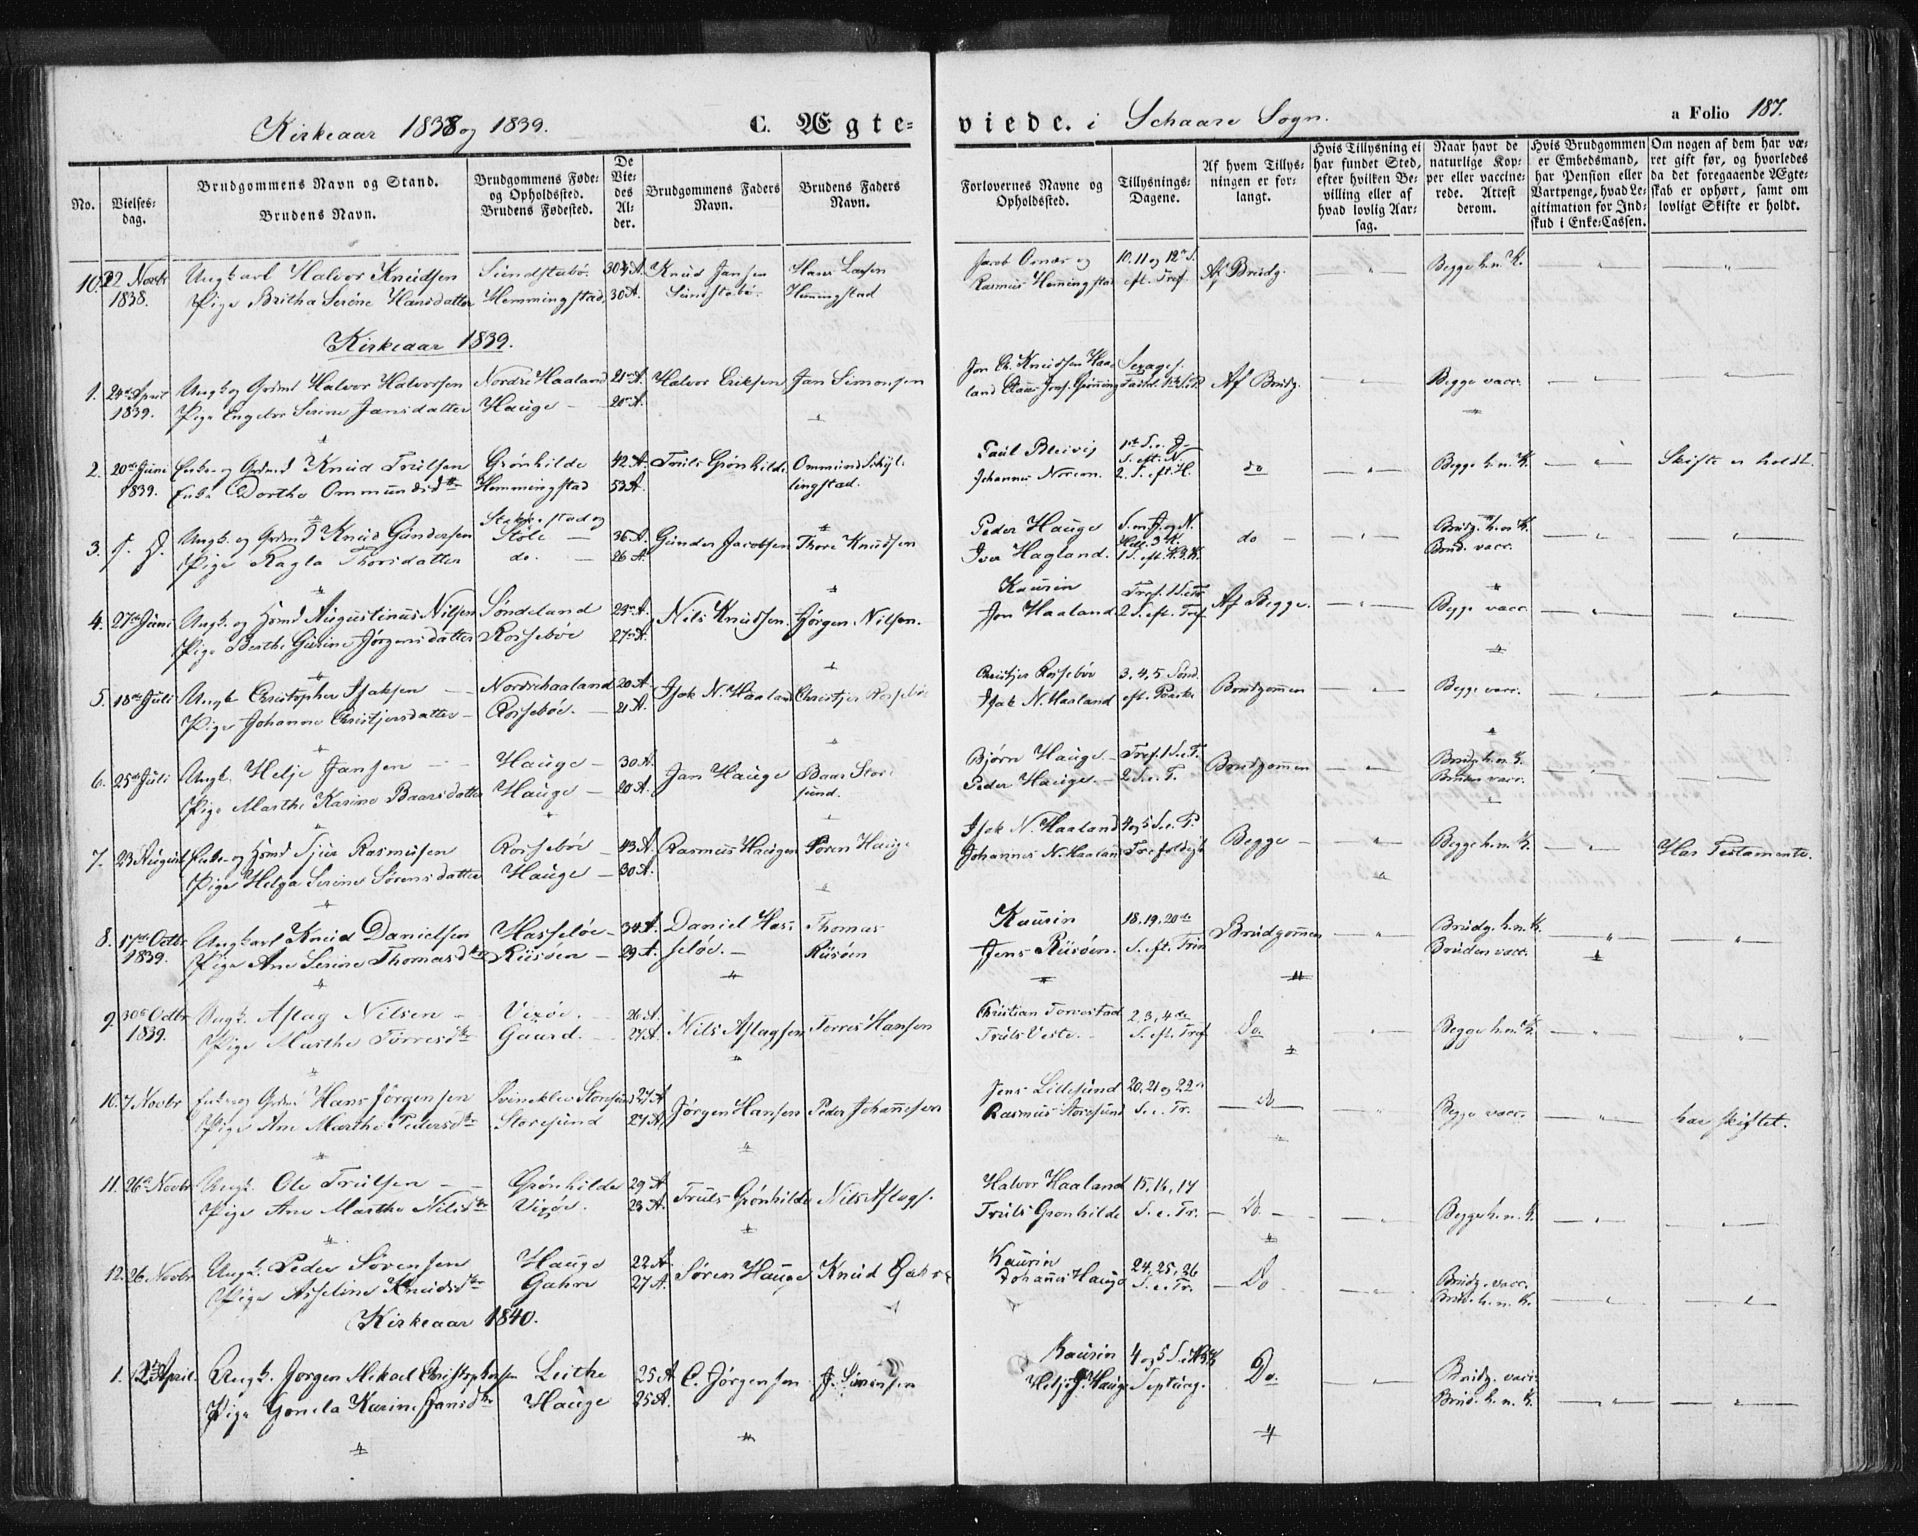 Kirkeaar 1838 og 1839. C. Ægte-viede. i Schaare Sogn. a Folio 187.
No. | Vielses-dag. | Brudgommens Navn og Stand. Brudens Navn. | Brudgommens Føde- og Opholdssted. Brudens Fødested. | De Vie-des Al-der. | Brudgommens Faders Navn. | Brudens Faders Navn. | Forlovernes Navne og Opholdssted. | Tillysnings-Dagene. | Af hvem Tillys-ningen er for-langt. | Hvis Tillysning ei har fundet Sted, efter hvilken Be-villing eller af hvad lovlig Aar-sag. | Naar havt de naturlige Kop-per eller vaccine-rede. Attest derom. | Hvis Brudgommen er Embedsmand, har Pension eller Vartpenge, hvad Le-gitimation for Ind-skud i Enke-Cassen. | Om nogen af dem har væ-ret gift før, og hvorledes da det foregaaende Ægte-skab er ophørt, samt om lovligt Skifte er holdt.
10. 22 Novbr Ungkarl Halvor Knudsen Sundstabø. Knud Jansen Hans Larsen Jacob Osnæs og 10. 11 og 12te S. Af Brudg. Begge h. n. K.
1838. Pige Britha Serine Hansdatter Hemmingstad. 30 A. Sundstabø. Hemmingstad Rasmus Hemmingstad eft. Tref.
Kirkeaar 1839.
1. 24de April Ungk. og Grdmd Halvor Halvorsen Nordre Haaland 21 A. Halvor Eriksen Jan Simonsen Jon Ch. Knudsen Haa- Sexages. Af Brudg. Begge vacc.
1839. Pige Engebor Serine Jansdatter Hauge 20 A. land
2. 20de Juni Enke- og Grdmd Knud Trulsen Grønhilde 42 A. Truls Grønhilde Ommund Skyl- Paul Bleivig 1ste S. e. do Begge h. n. K. Skifte er holdt.
1839. Enke Dorthe Ommundsdtr Hemmingstad 53 A. lingstad. Johannes Norem. 2. S. eft. H.
3. Ungk. og Grdmd Knud Gundersen Stakkestad og Støle 36 A. Gunder Jacobsen Thore Knudsen Peder Hauge do Brudg. h. n. K.
Pige Ragla Thorsdatter do. 26 A. Iver Hagland. Brud. vacc.
4. 27de Juni Ungk. og Hsmd Augustinus Nilsen Søndeland 23 A. Nils Knudsen. Jørgen Nilsen. Kaurin Tref. 1 S. e. Tr. Af Begge. Begge vacc.
Pige Berthe Gurine Jørgensdatter Rossebøe 27 A. Jon Haaland 2 S. eft. Tref.
5. 18de Juli Ungk. Christopher Isaksen Nordrehaaland 20 A. Isak N. Haaland Christjer Rossebøe Christjer Rossebøe 3. 4. 5. Sønd. Brudgomen Begge vacc.
Pige Johanne Christjersdatter Rossebøe. 21 A. Isak N. Haaland eft. Paaske
6. 25de Juli Ungk. Helje Jansen Hauge 30 A. Jan Hauge Baar Store- Bjørn Hauge Tref. 1 S. e. T. Brudgomen Brudg. h. n. K.
Pige Marthe Karine Baarsdatter Hauge 20 A. sund. Peder Hauge. 2 S. e. T. Bruden vacc.
7. 23 August Enke- og Hsmd Sjur Rasmusen Rossebøe 43 A. Rasmus Haugen Søren Hauge Isak N. Haaland 4 og 5 S. e. P. Begge Begge h. n. K. Har Testamente.
Pige Helga Serine Sørensdatter Hauge 30 A. Johannes N. Haaland Trefoldigh.
8. 17de Octbr Ungkarl Knud Danielsen Hasseløe 34 A. Daniel Has- Thomas Kaurin 18. 19. 20de Brudgomen Brudg. h. n. K.
1839. Pige Ane Serine Thomasdtr Risøen 29 A. seløe. Risøen Jens Risøen. S. eft. Trin Bruden vacc.
9. 30te Octbr Ungk. Aslag Nilsen Vixøe. 26 A. Nils Aslagsen Torres Hansen Christian Torvestad 2. 3. 4de Do. Begge h. n. K.
1839. Pige Marthe Torresdtr Gaard. 27 A. Truls Veste. S. eft. Tref
10. 7 Novbr Enke- og Grdmd Hans Jørgensen Svineklev Storesund 27 A. Jørgen Hansen Peder Johannesen Jens Lillesund 20. 21 og 22de Do. Begge vacc. har skiftet.
Pige Ane Marthe Pedersdtr Storesund 27 A. Rasmus Storesund S. e. Tr.
11. 26de Novbr Ungk. Ole Trulsen Grønhilde 29 A. Truls Grønhilde Nils Aslags. Halvor Haaland 15, 16, 17 Do. Begge h. n. K.
Pige Ane Marthe Nilsdtr Vixøe. 23 A. Truls Grønhilde S. e. Tr.
12. 26 Novbr Ungk. Peder Sørensen Hauge 22 A. Søren Hauge Knud Gahre Kaurin 24, 25, 26 Do Brudg. vacc.
Pige Asseline Knudsdtr Gahre 27 A. Johannes Hauge S. e. Tr. Brud. h. n. K.
Kirkeaar 1840.
1. April Ungk. Jørgen Mikael Christophersen Leithe 25 A. C. Jørgensen J. Simonsen Kaurin 4 og 5 S. Do. Brudg. vacc.
Pige Gonela Karine Jansdtr Hauge 25 A. Helje J. Hauge Septuag. Brud. h. n. K.